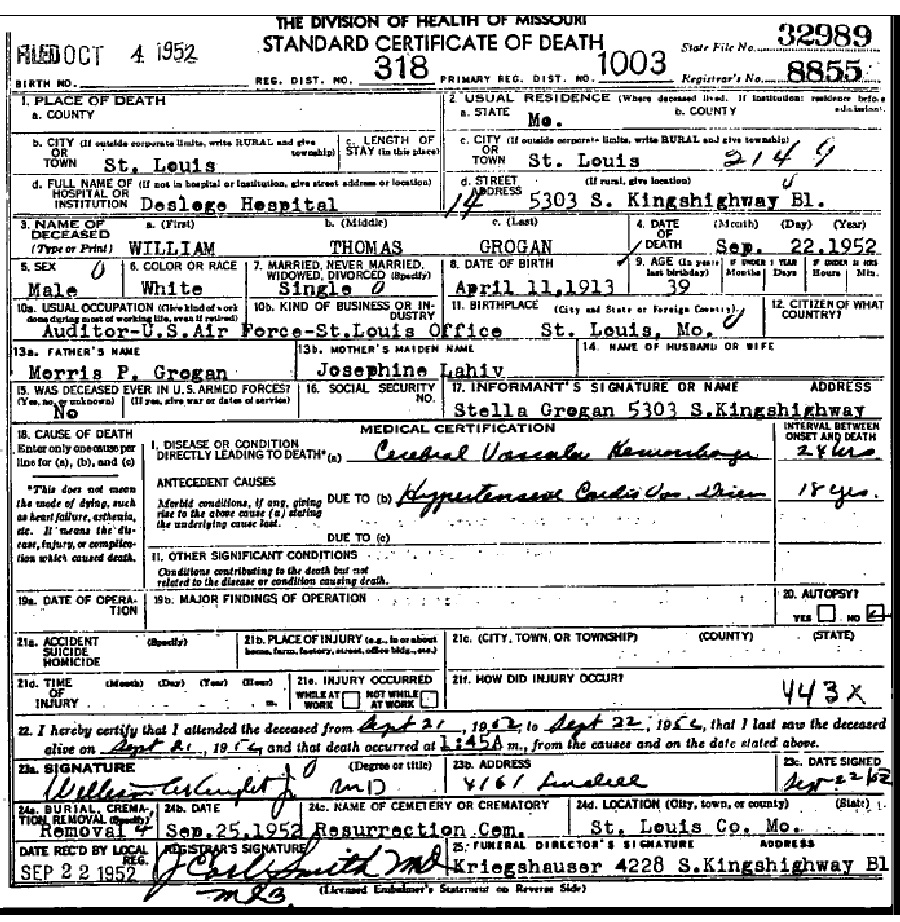 THE DIVISION OF HEALTH OF MISSOURI
STANDARD CERTIFICATE OF DEATH
FILED OCT 4 1952
State File No. 32989
BIRTH NO.
REG. DIST. NO. 318 PRIMARY REG. DIST. NO. 1003 Registrar's No. 8855
1. PLACE OF DEATH
a. COUNTY
2. USUAL RESIDENCE (Where deceased lived. If institution: residence before admission).
a. STATE Mo. b. COUNTY
b. CITY (If outside corporate limits, write RURAL and give township) OR TOWN St. Louis
c. LENGTH OF STAY (in this place)
c. CITY (If outside corporate limits, write RURAL and give township) OR TOWN St. Louis 2149
d. FULL NAME OF HOSPITAL OR INSTITUTION (If not in hospital or institution, give street address or location) Desloge Hospital
d. STREET ADDRESS (If rural, give location) 14 5303 S. Kingshighway Bl.
3. NAME OF DECEASED (Type or Print)
a. (First) WILLIAM b. (Middle) THOMAS c. (Last) GROGAN
4. DATE OF DEATH (Month) (Day) (Year) Sep. 22.1952
5. SEX Male
6. COLOR OR RACE White
7. MARRIED, NEVER MARRIED, WIDOWED, DIVORCED (Specify) Single
8. DATE OF BIRTH April 11,1913
9. AGE (In years last birthday) 39 IF UNDER 1 YEAR Months Days IF UNDER 24 HRS Hours Min.
10a. USUAL OCCUPATION (Give kind of work done during most of working life, even if retired)
10b. KIND OF BUSINESS OR INDUSTRY
Auditor-U.S.Air Force-St.Louis Office
11. BIRTHPLACE (City and State or Foreign Country) St. Louis, Mo.
12. CITIZEN OF WHAT COUNTRY?
13a. FATHER'S NAME Morris P. Grogan
13b. MOTHER'S MAIDEN NAME Josephine Lahiv
14. NAME OF HUSBAND OR WIFE
15. WAS DECEASED EVER IN U.S. ARMED FORCES? (Yes, no, or unknown) (If yes, give war or dates of service) No
16. SOCIAL SECURITY NO.
17. INFORMANT'S SIGNATURE OR NAME ADDRESS
Stella Grogan 5303 S.Kingshighway
18. CAUSE OF DEATH
Enter only one cause per line for (a), (b), and (c)
*This does not mean the mode of dying, such as heart failure, asthenia, etc. It means the disease, injury, or complication which caused death.
MEDICAL CERTIFICATION
I. DISEASE OR CONDITION DIRECTLY LEADING TO DEATH* (a) Cerebral Vascular Hemorrhage
INTERVAL BETWEEN ONSET AND DEATH
24 hrs
ANTECEDENT CAUSES
Morbid conditions, if any, giving rise to the above cause (a) stating the underlying cause last.
DUE TO (b) Hypertensive Cardio Vas. 18 yrs.
DUE TO (c)
II. OTHER SIGNIFICANT CONDITIONS
Conditions contributing to the death but not related to the disease or condition causing death.
19a. DATE OF OPERATION
19b. MAJOR FINDINGS OF OPERATION
20. AUTOPSY?
YES NO
21a. ACCIDENT SUICIDE HOMICIDE (Specify)
21b. PLACE OF INJURY (e.g., in or about home, farm, factory, street, office bldg., etc.)
21c. (CITY, TOWN, OR TOWNSHIP) (COUNTY) (STATE)
21d. TIME OF INJURY (Month) (Day) (Year) (Hour) m.
21e. INJURY OCCURRED
WHILE AT WORK NOT WHILE AT WORK
21f. HOW DID INJURY OCCUR?
443X
22. I hereby certify that I attended the deceased from Sept 21, 1952, to Sept 22, 1952, that I last saw the deceased
alive on Sept 21, 1952, and that death occurred at 1:45A m., from the causes and on the date stated above.
23a. SIGNATURE (Degree or title) MD
23b. ADDRESS 4161 Lindell
23c. DATE SIGNED Sept 22/52
24a. BURIAL, CREMATION, REMOVAL (Specify) Removal 4
24b. DATE Sep.25.1952
24c. NAME OF CEMETERY OR CREMATORY Resurrection Cem.
24d. LOCATION (City, town, or county) (State) St. Louis Co. Mo.
DATE REC'D BY LOCAL REG. SEP 22 1952
REGISTRAR'S SIGNATURE J Carl Smith MD
25. FUNERAL DIRECTOR'S SIGNATURE ADDRESS
Kriegshauser 4228 S.Kingshighway Bl
(Licensed Embalmer's Statement on Reverse Side)